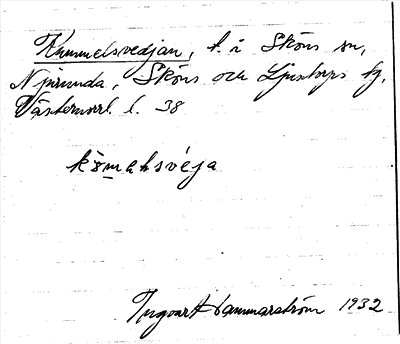 Kummelsvedjan, t. i Sköns sn,
Njurunda, Sköns och Ljustorps tg,
Västernorrl. l. 38
kömahsvéja
Ingvar Hammarström 1932